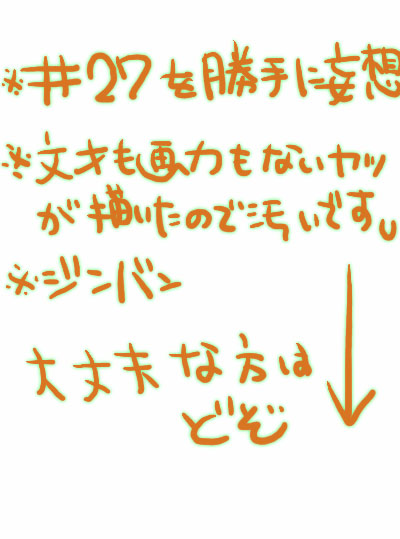 ※#27を勝手に妄想
※文才も画力もないヤツ
が描いたので汚いです。
※ジンバン
大丈夫な方は
どぞ